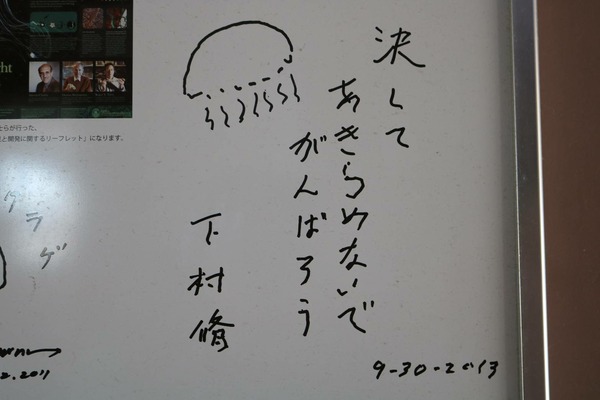 決して
あきらめないで
がんばろう
下村脩
9-30-2013
ght
らが行った、
と開発に関するリーフレット」になります。
クラゲ
2.2011